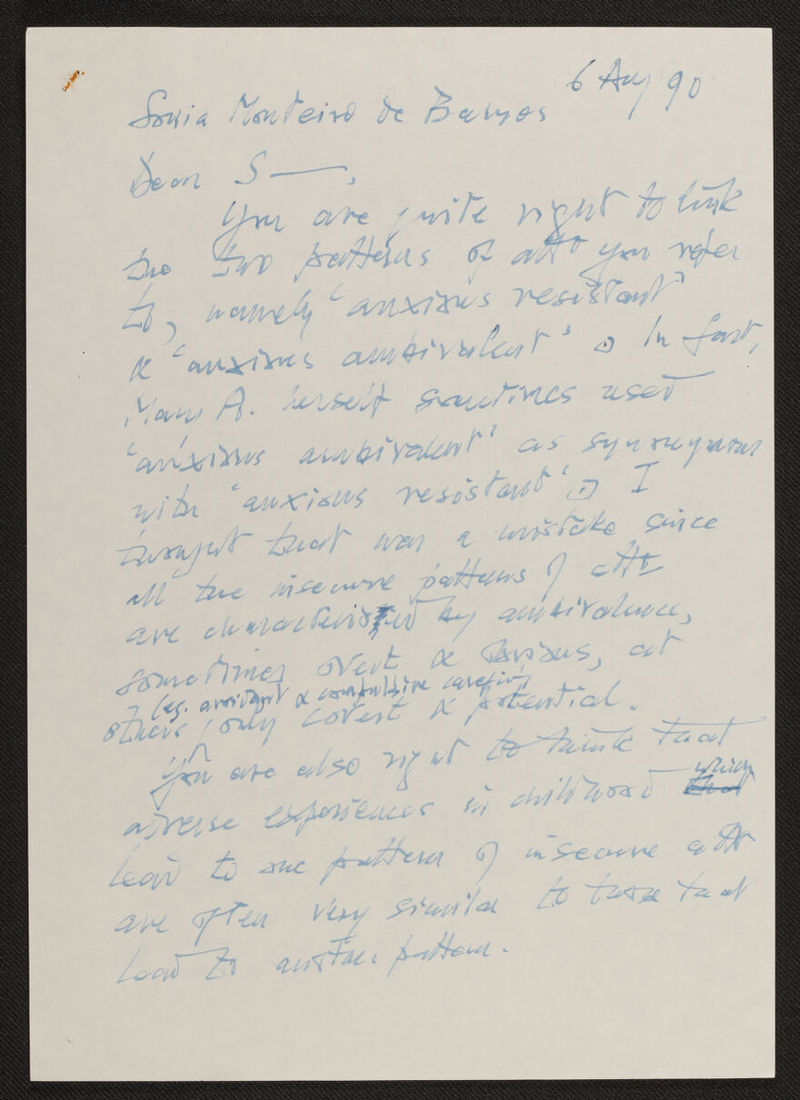 6 Aug 90
Sonia Monteiro de Barros
Dear S——,
You are quite right to link
the two patterns of attt you refer
to, namely 'anxious resistant'
& 'anxious ambivalent'. In fact,
Mary A. herself sometimes used
'anxious ambivalent' as synonymous
with 'anxious resistant'. I
thought that was a mistake since
all the insecure patterns of attt
are characterised by ambivalence,
sometimes overt & obvious, at
(eg. avoidant & compulsive caregiving)
others only covert & potential.
You are also right to think that
which
adverse experiences in childhood that
lead to one pattern of insecure attt
are often very similar to those that
lead to another pattern.